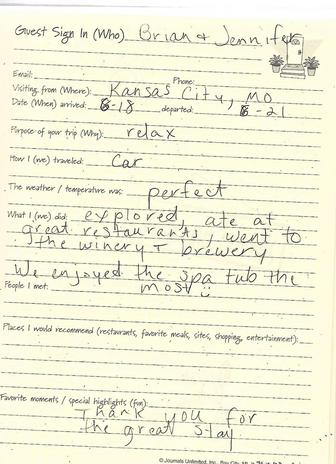 Guest Sign In (Who) Brian & Jennifer
Email: Phone:
Visiting from (Where): Kansas City, MO
Date (When) arrived: 6-18 departed: 6-21
Purpose of your trip (Why): relax
How I (we) traveled: Car
The weather / temperature was: perfect
What I (we) did: explored, ate at
great restaurants, went to
the winery + brewery
We enjoyed the spa tub the
People I met: most
Places I would recommend (restaurants, favorite meals, sites, shopping, entertainment):
Favorite moments / special highlights (fun):
Thank you for
the great stay
© Journals Unlimited, Inc. Bay City, MI